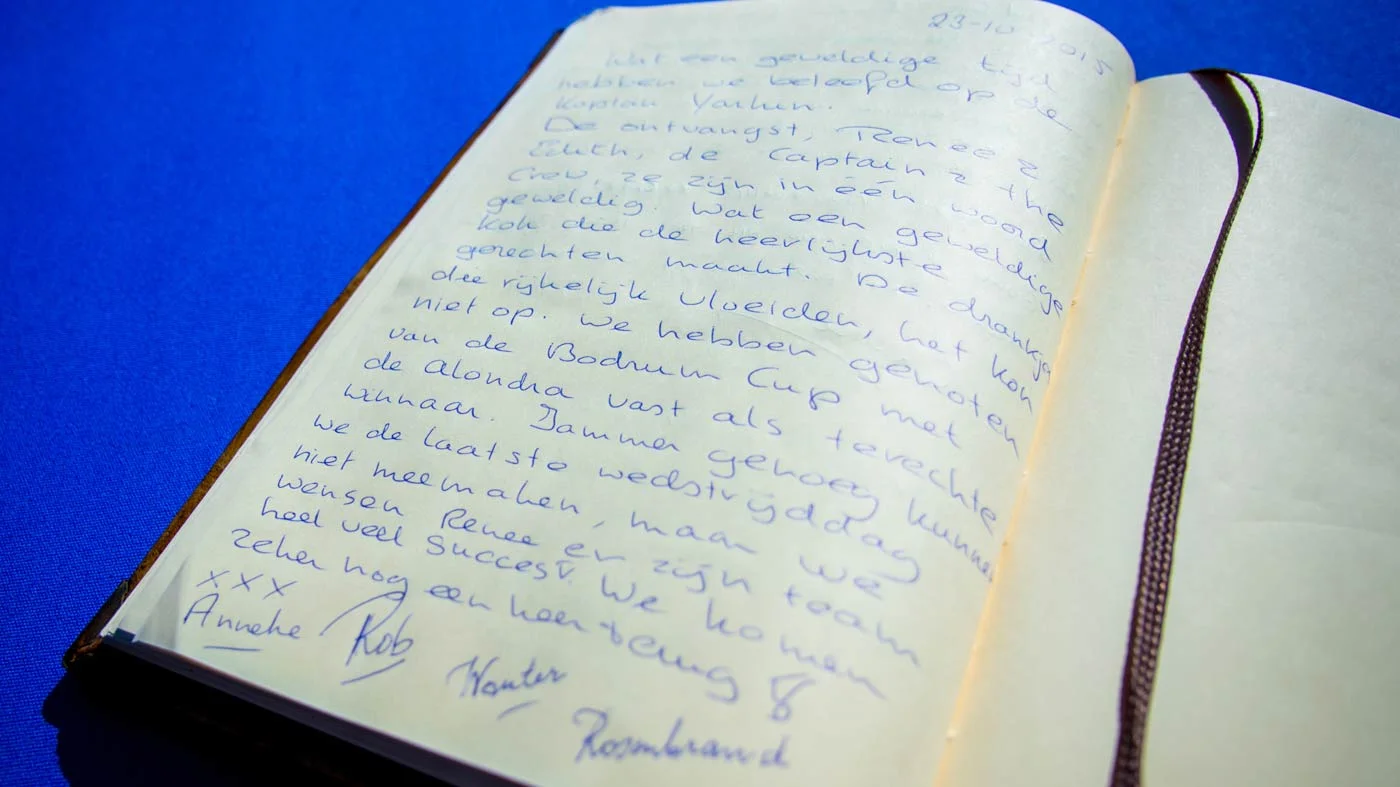 23-10 2015
Wat een geweldige tijd
hebben we beleefd op de
Kaptan Yarkin.
De ontvangst, Renee &
Edith, de Captain & the
Crew, ze zijn in één woord
geweldig. Wat een geweldige
kok die de heerlijkste
gerechten maakt. De drankjes
die rijkelijk vloeiden, het kon
niet op. We hebben genoten
van de Bodrum Cup met
de Alondra vast als terechte
winnaar. Jammer genoeg kunnen
we de laatste wedstrijddag
niet meemaken, maar we
wensen Renee en zijn team
heel veel succes!. We komen
zeker nog een keer terug
xxx
Anneke Rob
Wouter
Rosenbrand